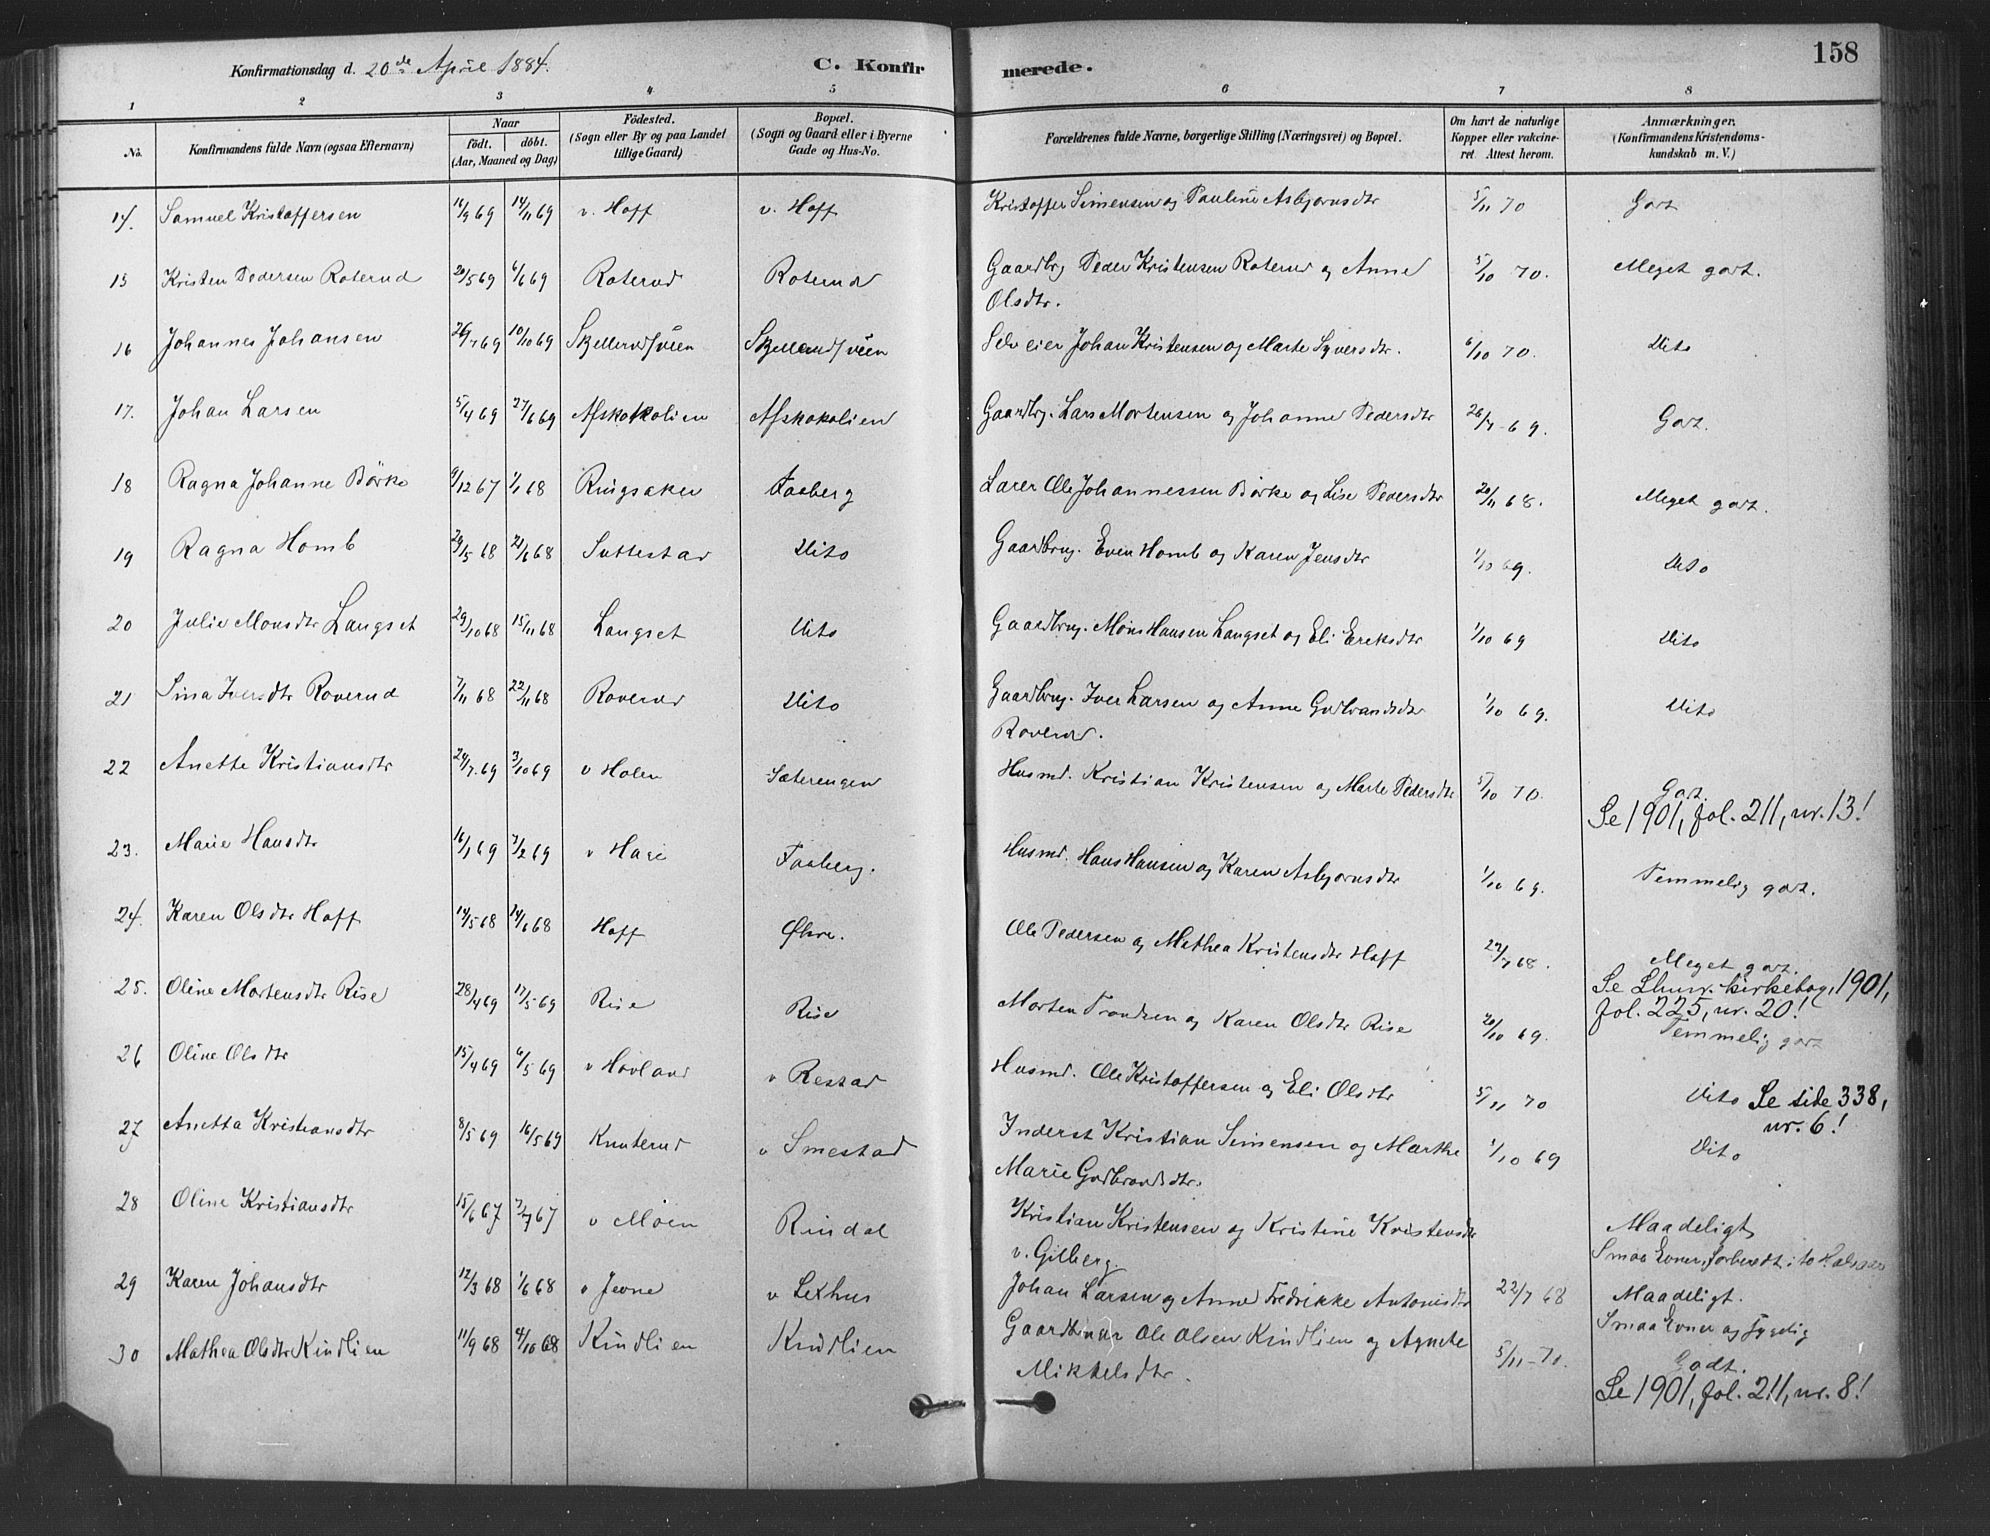 158
Konfirmationsdag d. 20de April 1884. C. Konfirmerede.
1 2 3 4 5 6 7 8
No. Konfirmandens fulde Navn (ogsaa Efternavn) Naar født. døbt. (Aar, Maaned og Dag) Fødested. (Sogn eller By og paa Landet tillige Gaard) Bopæl. (Sogn og Gaard eller i Byerne Gade og Hus-No. Forældrenes fulde Navne, borgerlige Stilling (Næringsvei) og Bopæl. Om havt de naturlige Kopper eller vakcineret Attest herom. Anmærkninger. (Konfirmandens Kristendomskundskab m. V.)
14. Samuel Kristoffersen 11/9 69 14/11 69 v. Hoff v. Hoff Kristoffer Simensen og Pauline Asbjørnsdtr 5/11 70 Godt
15 Kristen Pedersen Roterud 20/5 69 6/6 69 Roterud Roterud Gaardbrg Peder Kristensen Roterud og Anne Olsdtr. 5/10 70. Meget godt.
16 Johannes Johansen 26/7 69 10/10 69 Skjellerudsveen Skjellerudsveen Selveier Johan Kristensen og Marte Syversdtr. 6/10 70. Dito
17. Johan Larsen 5/4 69 27/6 69 Afskakolien Afskakolien Gaardbrg. Lars Mortensen og Johanne Pedersdtr 26/7 69. Godt.
18 Ragna Johanne Børke 9/12 67 1/1 68 Ringsaker Faaberg Lærer Ole Johannessen Børke og Lise Pedersdtr 20/11 68. Meget godt.
19 Ragna Homb 29/5 68 21/6 68 Suttestad Dito Gaardbrug. Even Homb og Karen Jensdtr 1/10 69. Dito
20 Julie Monsdtr Langset 29/10 68 15/11 68 Langset Dito Gaardbrug. Mons Hansen Langset og Eli Eriksdtr 1/10 69 Dito
21 Sina Iversdtr Roverud 7/11 68 22/11 68 Roverud Dito Gaardbrug. Iver Larsen og Anne Gudbrandsdtr Roverud. 1/10 69. Dito
22 Anette Kristiansdtr 24/7 69 3/10 69 v Holen Sæterengen Husmd. Kristian Kristensen og Marte Pedersdtr 5/10 70. Godt.
Se 1901, fol. 211, nr. 13!
23. Marie Hansdtr 16/1 69 7/2 69 v Hage Faaberg. Husmd. Hans Hansen og Karen Asbjørnsdtr 1/10 69. Temmelig godt.
24. Karen Olsdtr Hoff 14/5 68 14/6 68 Hoff Øhre. Ole Pedersen og Mathea Kristensdtr Hoff 22/7 68. Meget godt.
Se Lhmr. kirkebog, 1901, fol. 225, nr. 20!
25. Oline Mortensdtr Rise 28/4 69 17/5 69 Rise Rise Morten Trondsen og Karen Olsdtr Rise 20/10 69. Temmelig godt
26 Oline Olsdtr 15/4 69 6/5 69 v Hovland v Restad Husmd. Ole Kristoffersen og Eli Olsdtr 5/11 70 Dito Se side 338, nr. 6!
27 Anetta Kristiansdtr 8/5 69 16/5 69 Knuterud v Smestad Inderst Kristian Simensen og Marthe Marie Gudbrandsdtr. 1/10 69 Dito
28 Oline Kristiansdtr 15/6 67 7/7 67 v Moen Rindal Kristian Kristensen og Kristine Kristensdtr v. Gilberg. Maadeligt
Smaa Evner, forberedt i to
29 Karen Johansdtr 12/3 68 1/6 68 v Jevne v Lexhus Johan Larsen og Anne Fredrikke Antonisdtr 22/7 68 Maadeligt.
Smaa Evner og sygelig
30 Mathea Olsdtr Kindlien 11/9 68 4/10 68 Kindlien Kindlien Gaardbruger Ole Olsen Kindlien og Agnete Mikkelsdtr. 5/11 70. Godt.
Se 1901, fol. 211, nr. 8!